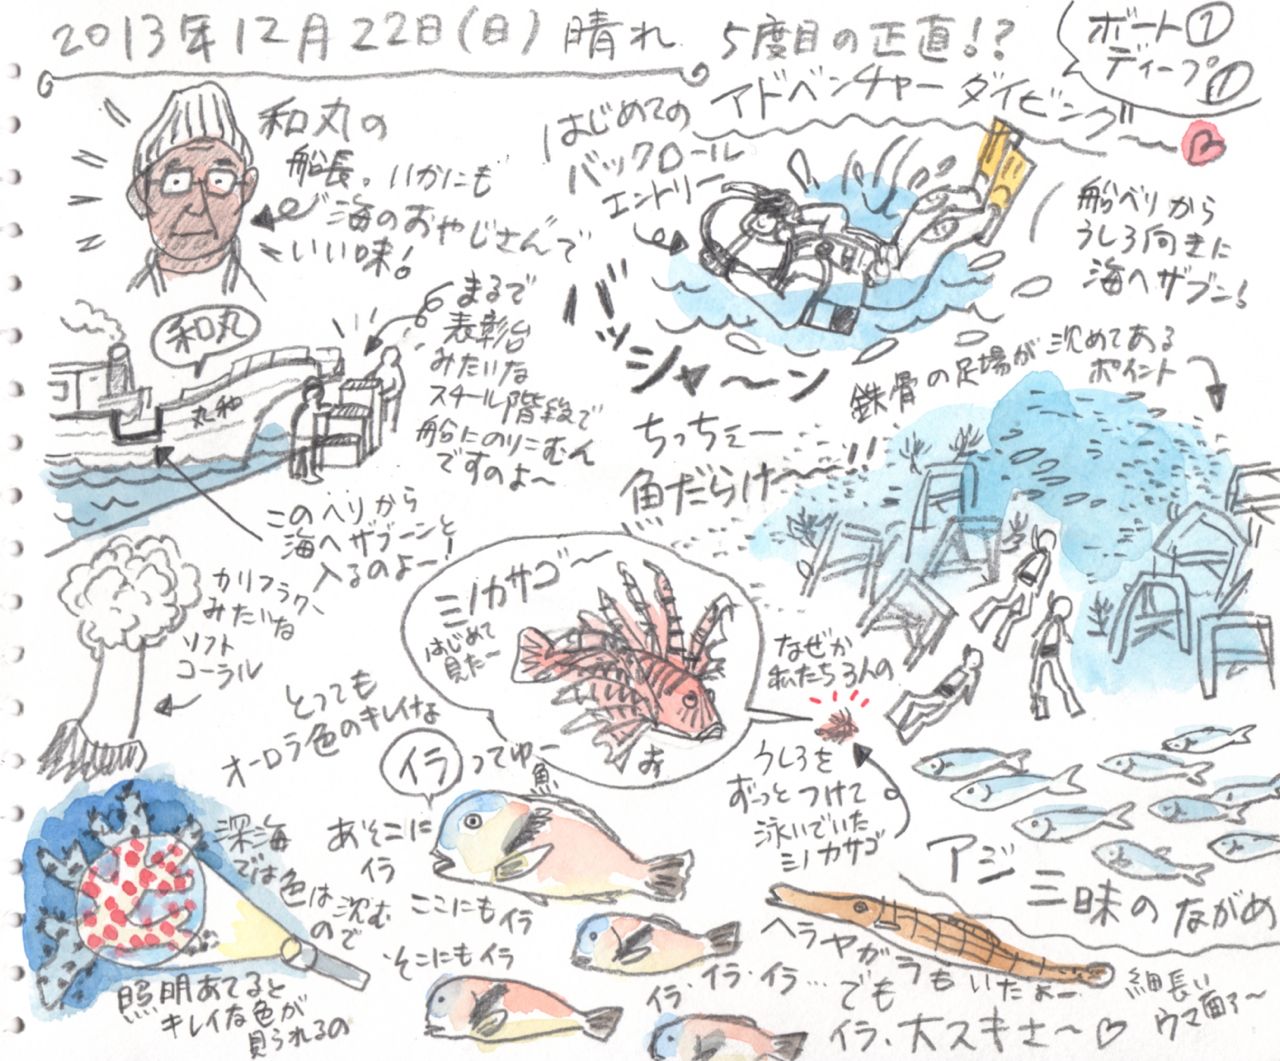 2013年12月22日(日)晴れ
5度目の正直!?
ボート①
ディープ①
アドベンチャーダイビング〜
和丸の
船長。いかにも
海のおやじさんで
いい味!
はじめての
バックロール
エントリー
船べりから
うしろ向きに
海へザブン!
バッシャ〜ン
和丸
和丸
まるで
表彰台
みたいな
スチール階段で
船にのりこむん
ですのよ〜
このへりから
海へザブーンと
入るのよー!
鉄骨の足場が沈めてある
ポイント
ちっちぇー
魚だらけ〜!!
カリフラワー
みたいな
ソフト
コーラル
ミノカサゴ〜
はじめて
見た〜
お
なぜか
私たち3人の
うしろを
ずっとつけて
泳いでいた
ミノカサゴ
とっても
オーロラ色のキレイな
イラってゆー
魚
あそこに
イラ
ここにもイラ
そこにもイラ
イラ・イラ…
イラ・
アジ三昧のながめ
深海
では
色は
沈む
ので
照明あてると
キレイな色が
見られるの
ヘラヤガラもいたよー
でも
イラ、大スキさ〜♡
細長い
ウマ面ァ〜